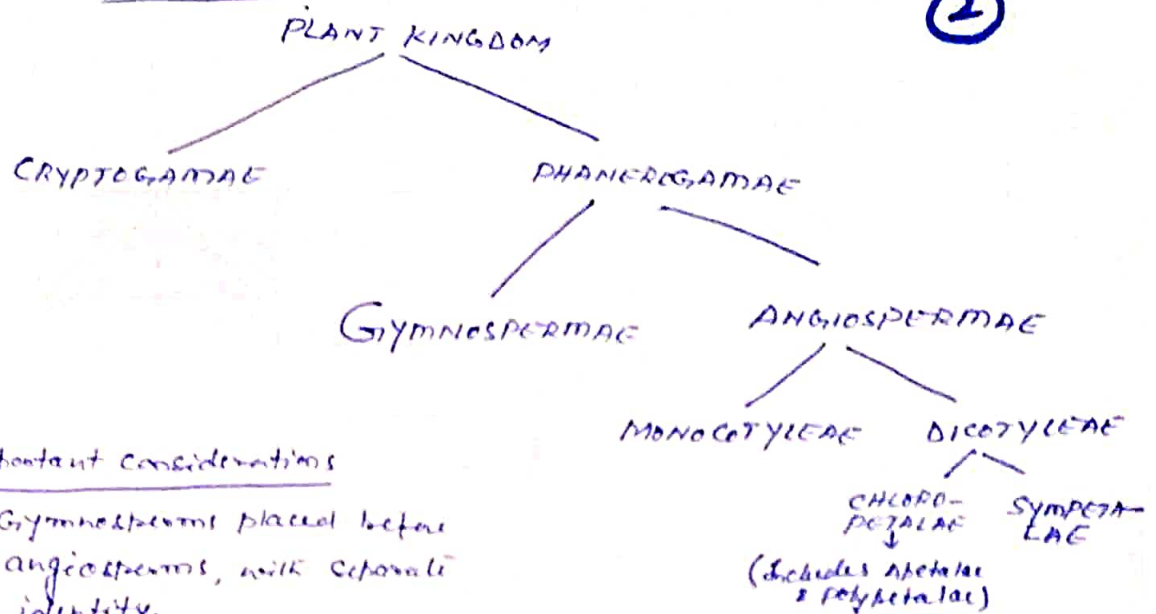 2
PLANT KINGDOM
CRYPTOGAMAE
PHANEROGAMAE
GYMNOSPERMAE
ANGIOSPERMAE
MONOCOTYLEAE
DICOTYLEAE
CHLORO-
PETALAE
SYMPETA-
LAE
(Includes Apetalae
& polypetalae)
portant considerations
Gymnosperms placed before
angiosperms, with separate
identity.